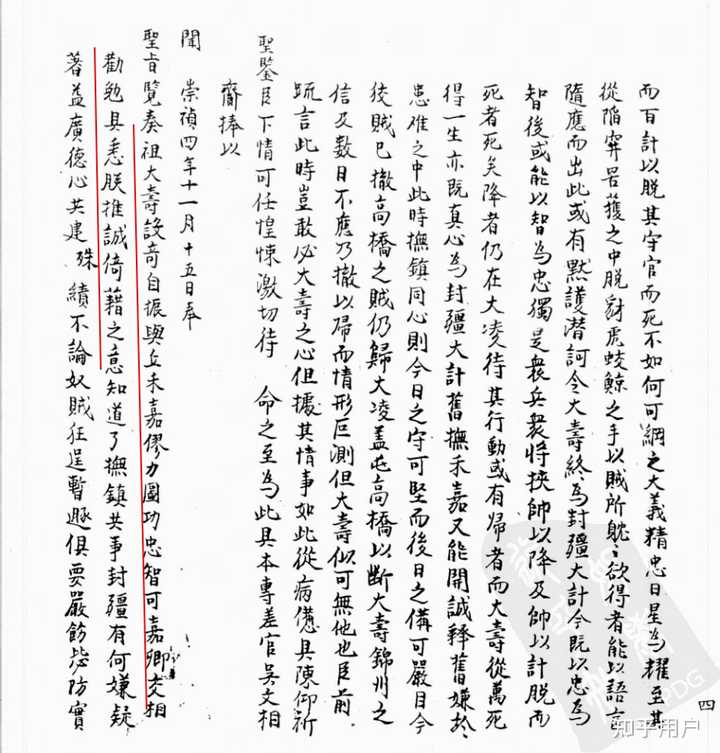 而百計以脫其守官而死不如何可綱之大義精忠日星為耀至其
從陷穽罟獲之中脫豺虎蛟鯨之手以賊所耽耽欲得者能以語言
隨應而出此或有默護潛訶令大壽終為封疆大計今既以忠為
智後或能以智為忠獨是衆兵衆將挾帥以降及帥以計脫而
死者死矣降者仍在大凌待其行動或有歸者而大壽從萬死
得一生亦既真心為封疆大計舊撫禾嘉又能開誠釋舊嫌於
患难之中此時撫鎮同心則今日之守可堅而後日之備可嚴目今
狡賊已撤高橋之賊仍歸大凌盖屯高橋以斷大壽錦州之
信及数日不應乃撤以歸而情形叵測但大壽似可無他也臣前
疏言此時豈敢必大壽之心但據其情事如此從病僾具陳仰祈
聖鑒臣下情可任惶悚激切待 命之至為此具本專差官吳文相
齎捧以
聞 崇禎四年十一月十五日奉
聖旨覽奏祖大壽設奇自振與丘禾嘉僇力圖功忠智可嘉卿交相
勸勉具悉朕推誠倚藉之意知道了撫鎮共事封疆有何嫌疑
著益廣德心共建殊績不論奴賊狂逞暫遯俱要嚴飭毖防實
四
知乎用户
PDG